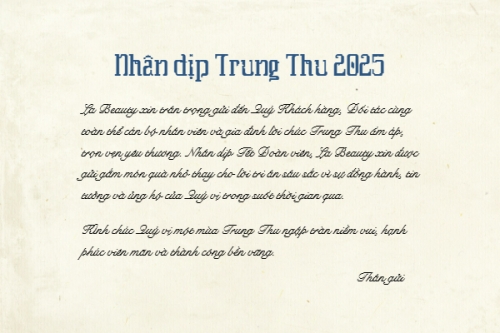 Nhân dịp Trung Thu 2025
La Beauty xin trân trọng gửi đến Quý Khách hàng, Đối tác cùng
toàn thể cán bộ nhân viên và gia đình lời chúc Trung Thu ấm áp,
trọn vẹn yêu thương. Nhân dịp Tết Đoàn viên, La Beauty xin được
gửi gắm món quà nhỏ thay cho lời tri ân sâu sắc vì sự đồng hành, tin
tưởng và ủng hộ của Quý vị trong suốt thời gian qua.
Kính chúc Quý vị một mùa Trung Thu ngập tràn niềm vui, hạnh
phúc viên mãn và thành công bền vững.
Thân gửi